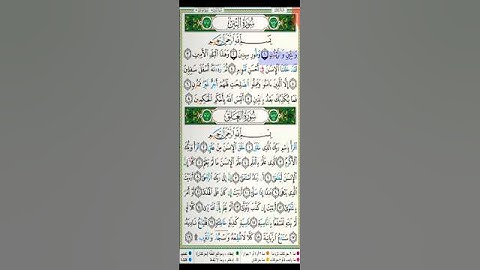 سُورَةُ التِّينِ
بِسْمِ اللَّهِ الرَّحْمَٰنِ الرَّحِيمِ
وَالتِّينِ وَالزَّيْتُونِ ١ وَطُورِ سِينِينَ ٢ وَهَٰذَا الْبَلَدِ الْأَمِينِ ٣
لَقَدْ خَلَقْنَا الْإِنسَٰنَ فِي أَحْسَنِ تَقْوِيمٍ ٤ ثُمَّ رَدَدْنَٰهُ أَسْفَلَ سَٰفِلِينَ
٥ إِلَّا الَّذِينَ ءَامَنُوا وَعَمِلُوا الصَّٰلِحَٰتِ فَلَهُمْ أَجْرٌ غَيْرُ مَمْنُونٍ ٦
فَمَا يُكَذِّبُكَ بَعْدُ بِالدِّينِ ٧ أَلَيْسَ اللَّهُ بِأَحْكَمِ الْحَٰكِمِينَ ٨
سُورَةُ الْعَلَقِ
بِسْمِ اللَّهِ الرَّحْمَٰنِ الرَّحِيمِ
اقْرَأْ بِاسْمِ رَبِّكَ الَّذِي خَلَقَ ١ خَلَقَ الْإِنسَٰنَ مِنْ عَلَقٍ ٢ اقْرَأْ وَرَبُّكَ
الْأَكْرَمُ ٣ الَّذِي عَلَّمَ بِالْقَلَمِ ٤ عَلَّمَ الْإِنسَٰنَ مَا لَمْ يَعْلَمْ ٥ كَلَّا إِنَّ
الْإِنسَٰنَ لَيَطْغَىٰ ٦ أَن رَّءَاهُ اسْتَغْنَىٰ ٧ إِنَّ إِلَىٰ رَبِّكَ الرُّجْعَىٰ ٨ أَرَءَيْتَ
الَّذِي يَنْهَىٰ ٩ عَبْدًا إِذَا صَلَّىٰ ١٠ أَرَءَيْتَ إِن كَانَ عَلَى الْهُدَىٰ ١١
أَوْ أَمَرَ بِالتَّقْوَىٰ ١٢ أَرَءَيْتَ إِن كَذَّبَ وَتَوَلَّىٰ ١٣ أَلَمْ يَعْلَم بِأَنَّ اللَّهَ يَرَىٰ ١٤
كَلَّا لَئِن لَّمْ يَنتَهِ لَنَسْفَعًا بِالنَّاصِيَةِ ١٥ نَاصِيَةٍ كَٰذِبَةٍ خَاطِئَةٍ ١٦ فَلْيَدْعُ نَادِيَهُ
١٧ سَنَدْعُ الزَّبَانِيَةَ ١٨ كَلَّا لَا تُطِعْهُ وَاسْجُدْ وَاقْتَرِب ١٩